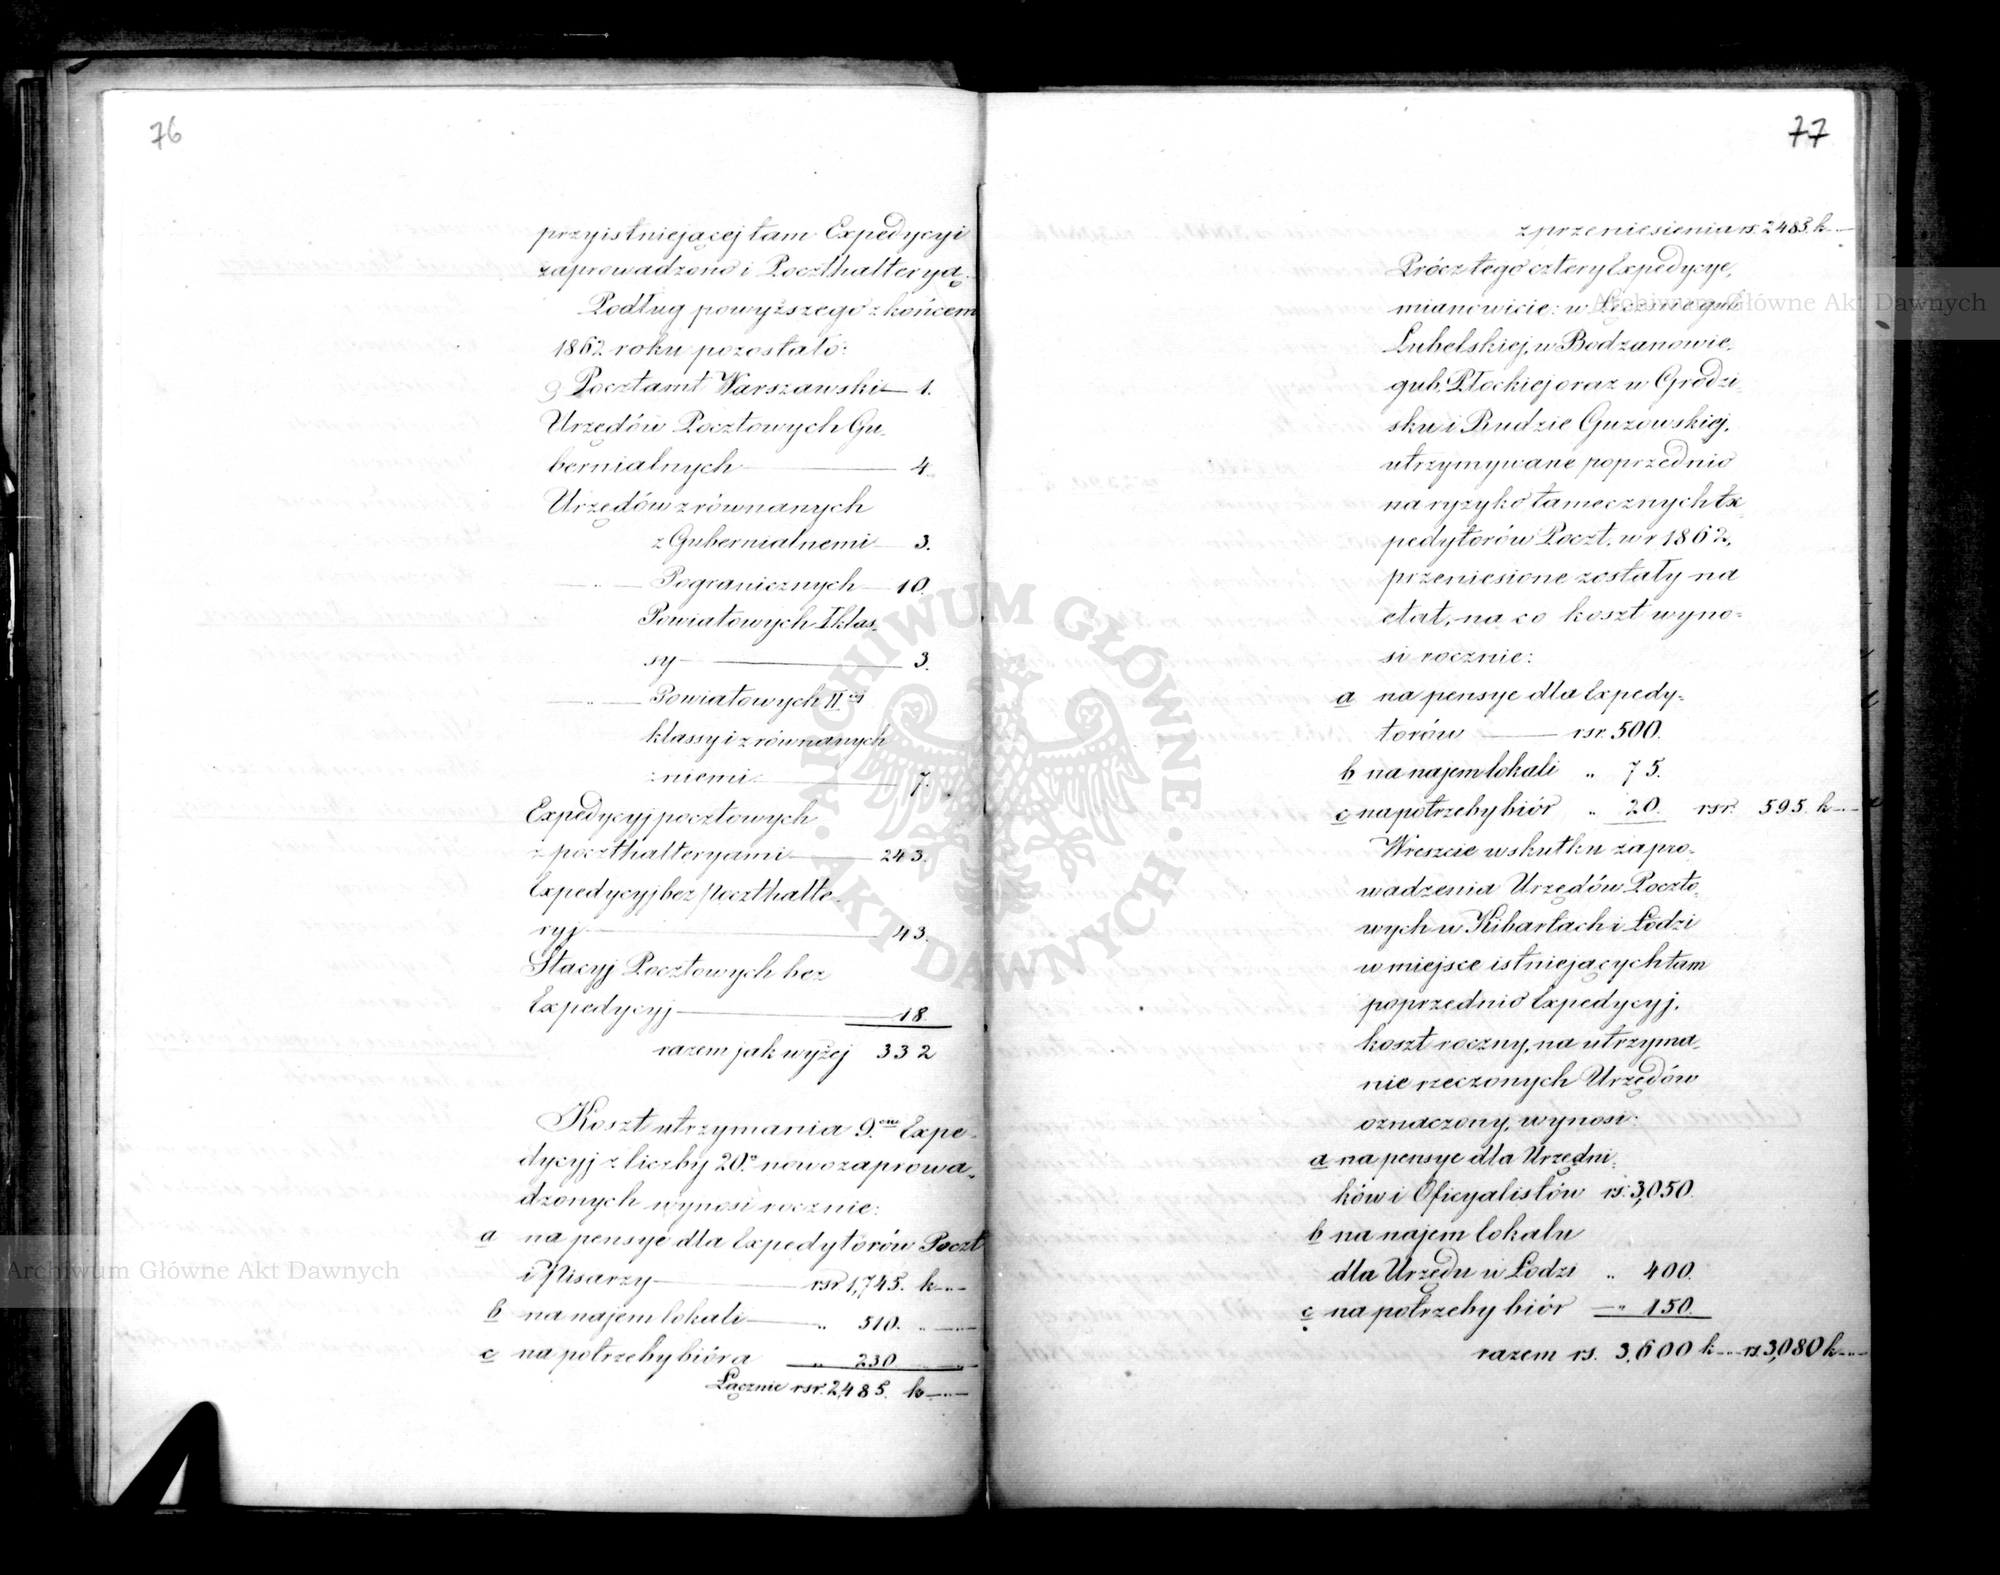 76
przy istniejącej tam Expedycyi
zaprowadzono i Poczthalteryą.
Podług powyższego z końcem
1862 roku pozostało:
Pocztamt Warszawski — 1.
Urzędów Pocztowych Gu-
bernialnych — 4.
Urzędów zrównanych
z Gubernialnemi — 3.
— „ — Pogranicznych — 10.
Powiatowych I klas-
sy — 3.
— „ — Powiatowych II ej
klassy i zrównanych
z niemi — 7.
Expedycyj pocztowych
z poczthalteryami — 243.
Expedycyj bez poczthalte-
ryj — 43.
Stacyj Pocztowych bez
Expedycyj — 18.
razem jak wyżej 332
Koszt utrzymania 9.ciu Expe-
dycyj z liczby 20.u nowozaprowa-
dzonych wynosi rocznie:
a na pensye dla Expedytorów Poczt
i Pisarzy — rsr. 1,745. k — „ —
b na najem lokali — „ 510. „ — „ —
c na potrzeby bióra „ 230 — „ —
Łącznie rsr. 2,485. k — „ —
77
z przeniesienia rs. 2485 k — „ —
Prócz tego cztery Expedycye,
mianowicie: w Łęcznie gub.
Lubelskiej, w Bodzanowie,
gub. Płockiej oraz w Grodzi-
sku i Rudzie Guzowskiej,
utrzymywane poprzednio
na ryzyko tamecznych Ex-
pedytorów Poczt. w r 1862,
przeniesione zostały na
etat, na co koszt wyno-
si rocznie:
a na pensye dla Expedy-
torów — rsr. 500.
b na najem lokali „ 75.
c na potrzeby biór „ 20. rsr. 595. k — „ —
Wreszcie wskutku zapro-
wadzenia Urzędów Poczto-
wych w Kibartach i Łodzi
w miejsce istniejących tam
poprzednio Expedycyj,
koszt roczny, na utrzyma-
nie rzeczonych Urzędów
oznaczony, wynosi:
a na pensye dla Urzędni-
ków i Oficyalistów rs. 3,050.
b na najem lokalu
dla Urzędu w Łodzi „ 400.
c na potrzeby biór — „ 150.
razem rs. 3,600 k — „ — rs. 3,080 k — „ —
Archiwum Główne Akt Dawnych
Archiwum Główne Akt Dawnych
ARCHIWUM GŁÓWNE · AKT DAWNYCH ·